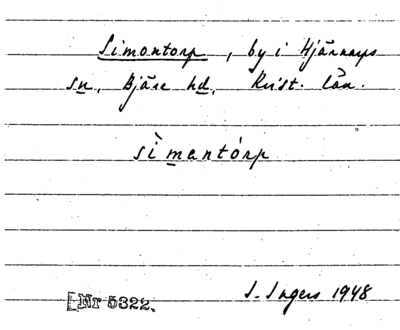 Simontorp, by i Hjärnarps
sn, Bjäre hd, Krist. län.
sìmantórp
[Nr 5322. I. Ingers 1948